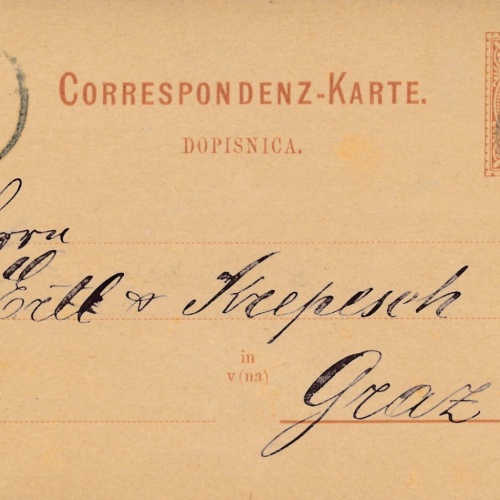 CORRESPONDENZ-KARTE.
DOPISNICA.
Ertl & Krepesch
in
v(na)
Graz